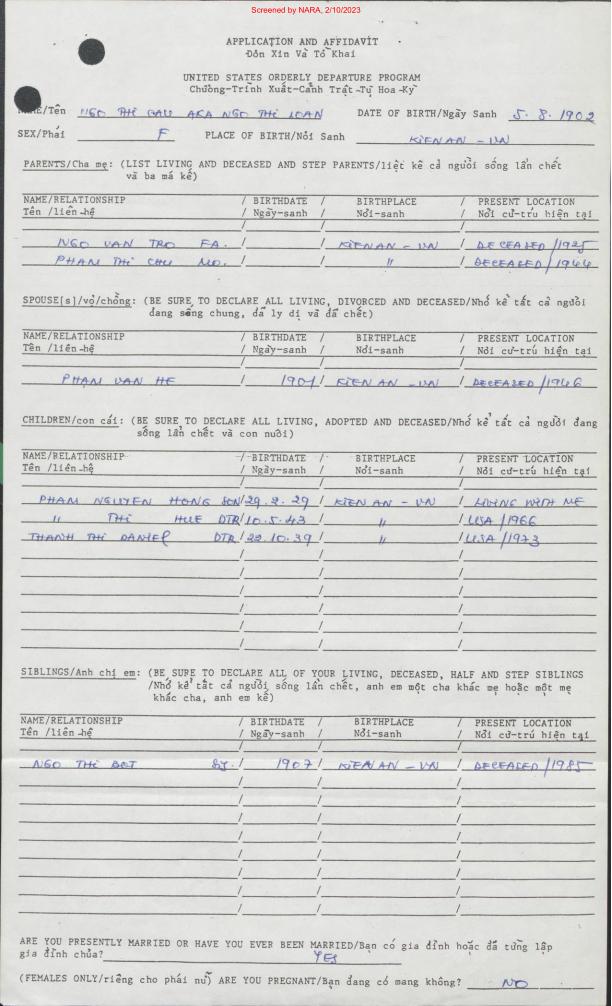 Screened by NARA, 2/10/2023
APPLICATION AND AFFIDAVIT
Đơn Xin Và Tờ Khai
UNITED STATES ORDERLY DEPARTURE PROGRAM
Chường-Trình Xuất-Cảnh Trật-Tự Hoa-Kỳ
/Tên NGO THI AKA NGO THI LOAN DATE OF BIRTH/Ngày Sanh 5.8.1902
SEX/Phái F PLACE OF BIRTH/Nỏi Sanh KIEN AN - VN
PARENTS/Cha mẹ: (LIST LIVING AND DECEASED AND STEP PARENTS/liệt kê cả người sống lẫn chết
và ba má kế)
NAME/RELATIONSHIP / BIRTHDATE / BIRTHPLACE / PRESENT LOCATION
Tên /liên-hệ / Ngày-sanh / Nỏi-sanh / Nỏi cử-trú hiện tại
NGO VAN TRO FA. / / KIEN AN - VN / DECEASED /1925
PHAM THI CHU MO. / / " / DECEASED /1944
SPOUSE[s]/vợ/chồng: (BE SURE TO DECLARE ALL LIVING, DIVORCED AND DECEASED/Nhớ kể tất cả người
đang sống chung, đã ly dị và đã chết)
NAME/RELATIONSHIP / BIRTHDATE / BIRTHPLACE / PRESENT LOCATION
Tên /liên-hệ / Ngày-sanh / Nỏi-sanh / Nỏi cử-trú hiện tại
PHAM VAN HE / 1901 / KIEN AN - VN / DECEASED /1946
CHILDREN/con cái: (BE SURE TO DECLARE ALL LIVING, ADOPTED AND DECEASED/Nhớ kể tất cả người đang
sống lẫn chết và con nuôi)
NAME/RELATIONSHIP / BIRTHDATE / BIRTHPLACE / PRESENT LOCATION
Tên /liên-hệ / Ngày-sanh / Nỏi-sanh / Nỏi cử-trú hiện tại
PHAM NGUYEN HONG SON/29.2.29 / KIEN AN - VN / LIVING WITH ME
" THI HUE DTR/10.5.43 / " / USA /1966
THANH THI DANIEL DTR/22.10.39 / " / USA /1973
SIBLINGS/Anh chị em: (BE SURE TO DECLARE ALL OF YOUR LIVING, DECEASED, HALF AND STEP SIBLINGS
/Nhớ kể tất cả người sống lẫn chết, anh em một cha khác mẹ hoặc một mẹ
khác cha, anh em kế)
NAME/RELATIONSHIP / BIRTHDATE / BIRTHPLACE / PRESENT LOCATION
Tên /liên-hệ / Ngày-sanh / Nỏi-sanh / Nỏi cử-trú hiện tại
NGO THI BOT / 1907 / KIEN AN - VN / DECEASED /1985
ARE YOU PRESENTLY MARRIED OR HAVE YOU EVER BEEN MARRIED/Bạn có gia đình hoặc đã từng lập
gia đình chủa? YES
(FEMALES ONLY/riêng cho phái nữ) ARE YOU PREGNANT/Bạn đang có mang không? NO